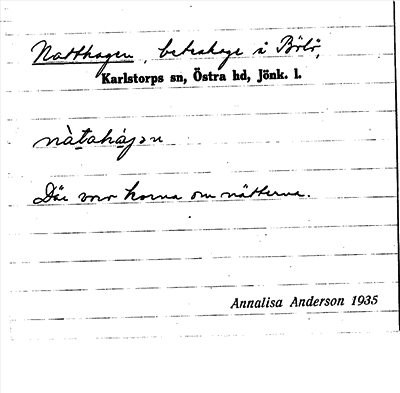 Natthagen, beteshage i Bölö,
Karlstorps sn, Östra hd, Jönk. l.
nàtahájən
Där voro korna om nätterna.
Annalisa Anderson 1935